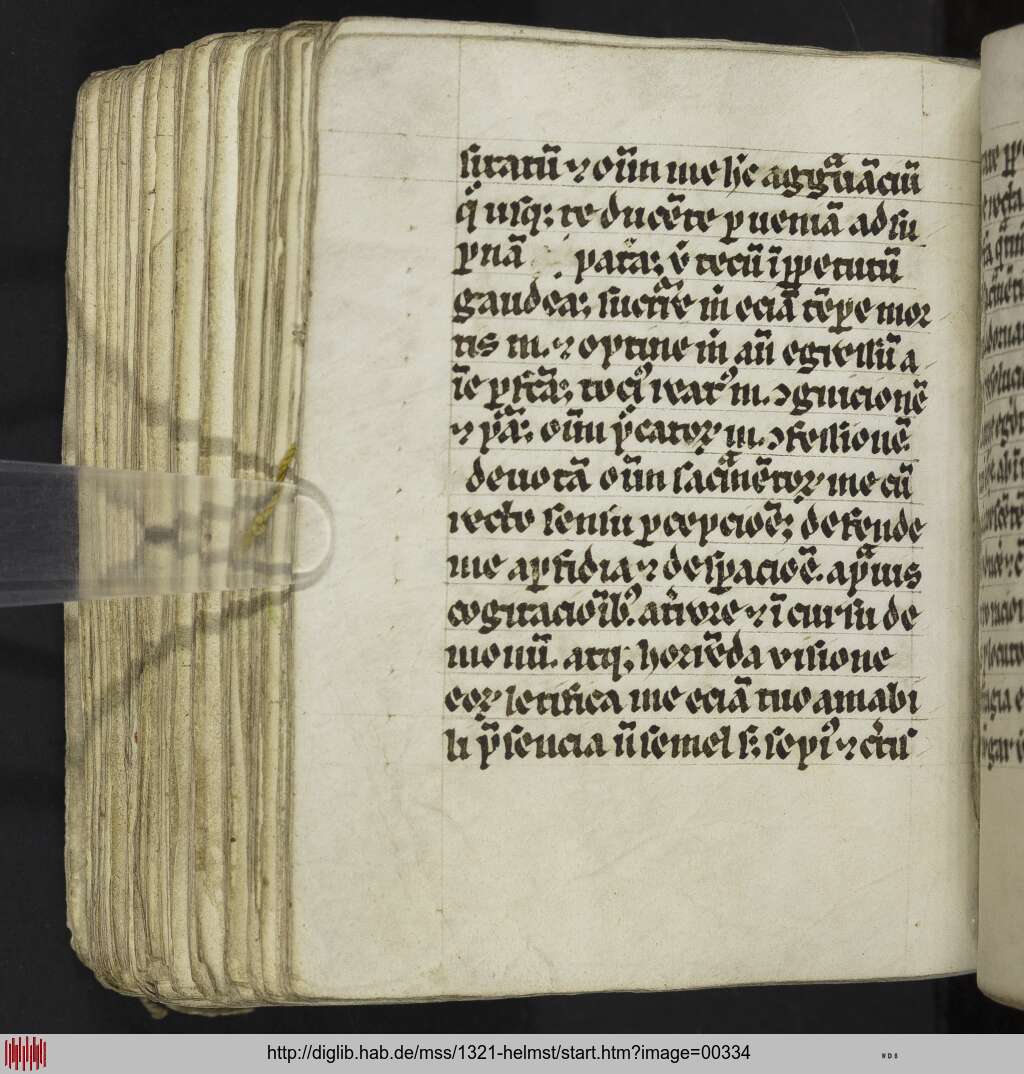 sitatū ⁊ oīm me h̄c aggͣuāciū
q̊usq; te ducēte ꝑueniā ad su
ꝑnā patͥa; ꝟ tecū ī ꝑpetuū
gaudea; succͬre m̄ eciā tēꝑe mor
tis m. ⁊ optine m̄ an̄ egressū a
īe ꝑfc̄ā; tociꝰ reatꝰ m. ↄgnicionē
⁊ pn̄ā; oīm p̄catoꝝ m. ↄfessionē
deuotā oīm sacͣmētoꝝ me cū
recto sensu ꝑcepcioē; defende
me a ꝑfidia ⁊ desꝑacioē. a pͣuis
cogitacioībꝰ. a tͥore ⁊ īcursu de
monū. atq; horrēda visione
eoꝝ letifica me eciā tuo amabi
li p̄sencia n̄ semel s; sepiꝰ ⁊ cͥtiꝰ
http://diglib.hab.de/mss/1321-helmst/start.htm?image=00334